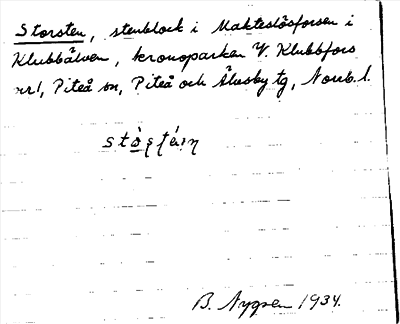 Storsten, stenblock i Makteslösforsen i
Klubbälven, kronoparken V. Klubbfors
nr1, Piteå sn, Piteå och Älvsby tg, Norrb. l.
B. Nygren 1934.